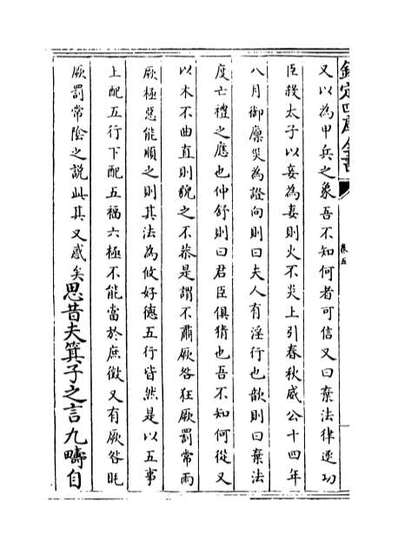 欽定四庫全書
卷五
又以為甲兵之象吾不知何者可信又曰棄法律逐功
臣殺太子以妾為妻則火不炎上引春秋威公十四年
八月御廩災為證向則曰夫人有淫行也歆則曰棄法
度亡禮之應也仲舒則曰君臣俱猜也吾不知何從又
以木不曲直則貌之不恭是謂不肅厥咎狂厥罰常雨
厥極惡能順之則其法為攸好德五行皆然是以五事
上配五行下配五福六極不能當於庶徵又有厥咎眊
厥罰常陰之說此其又惑矣思昔夫箕子之言九疇自